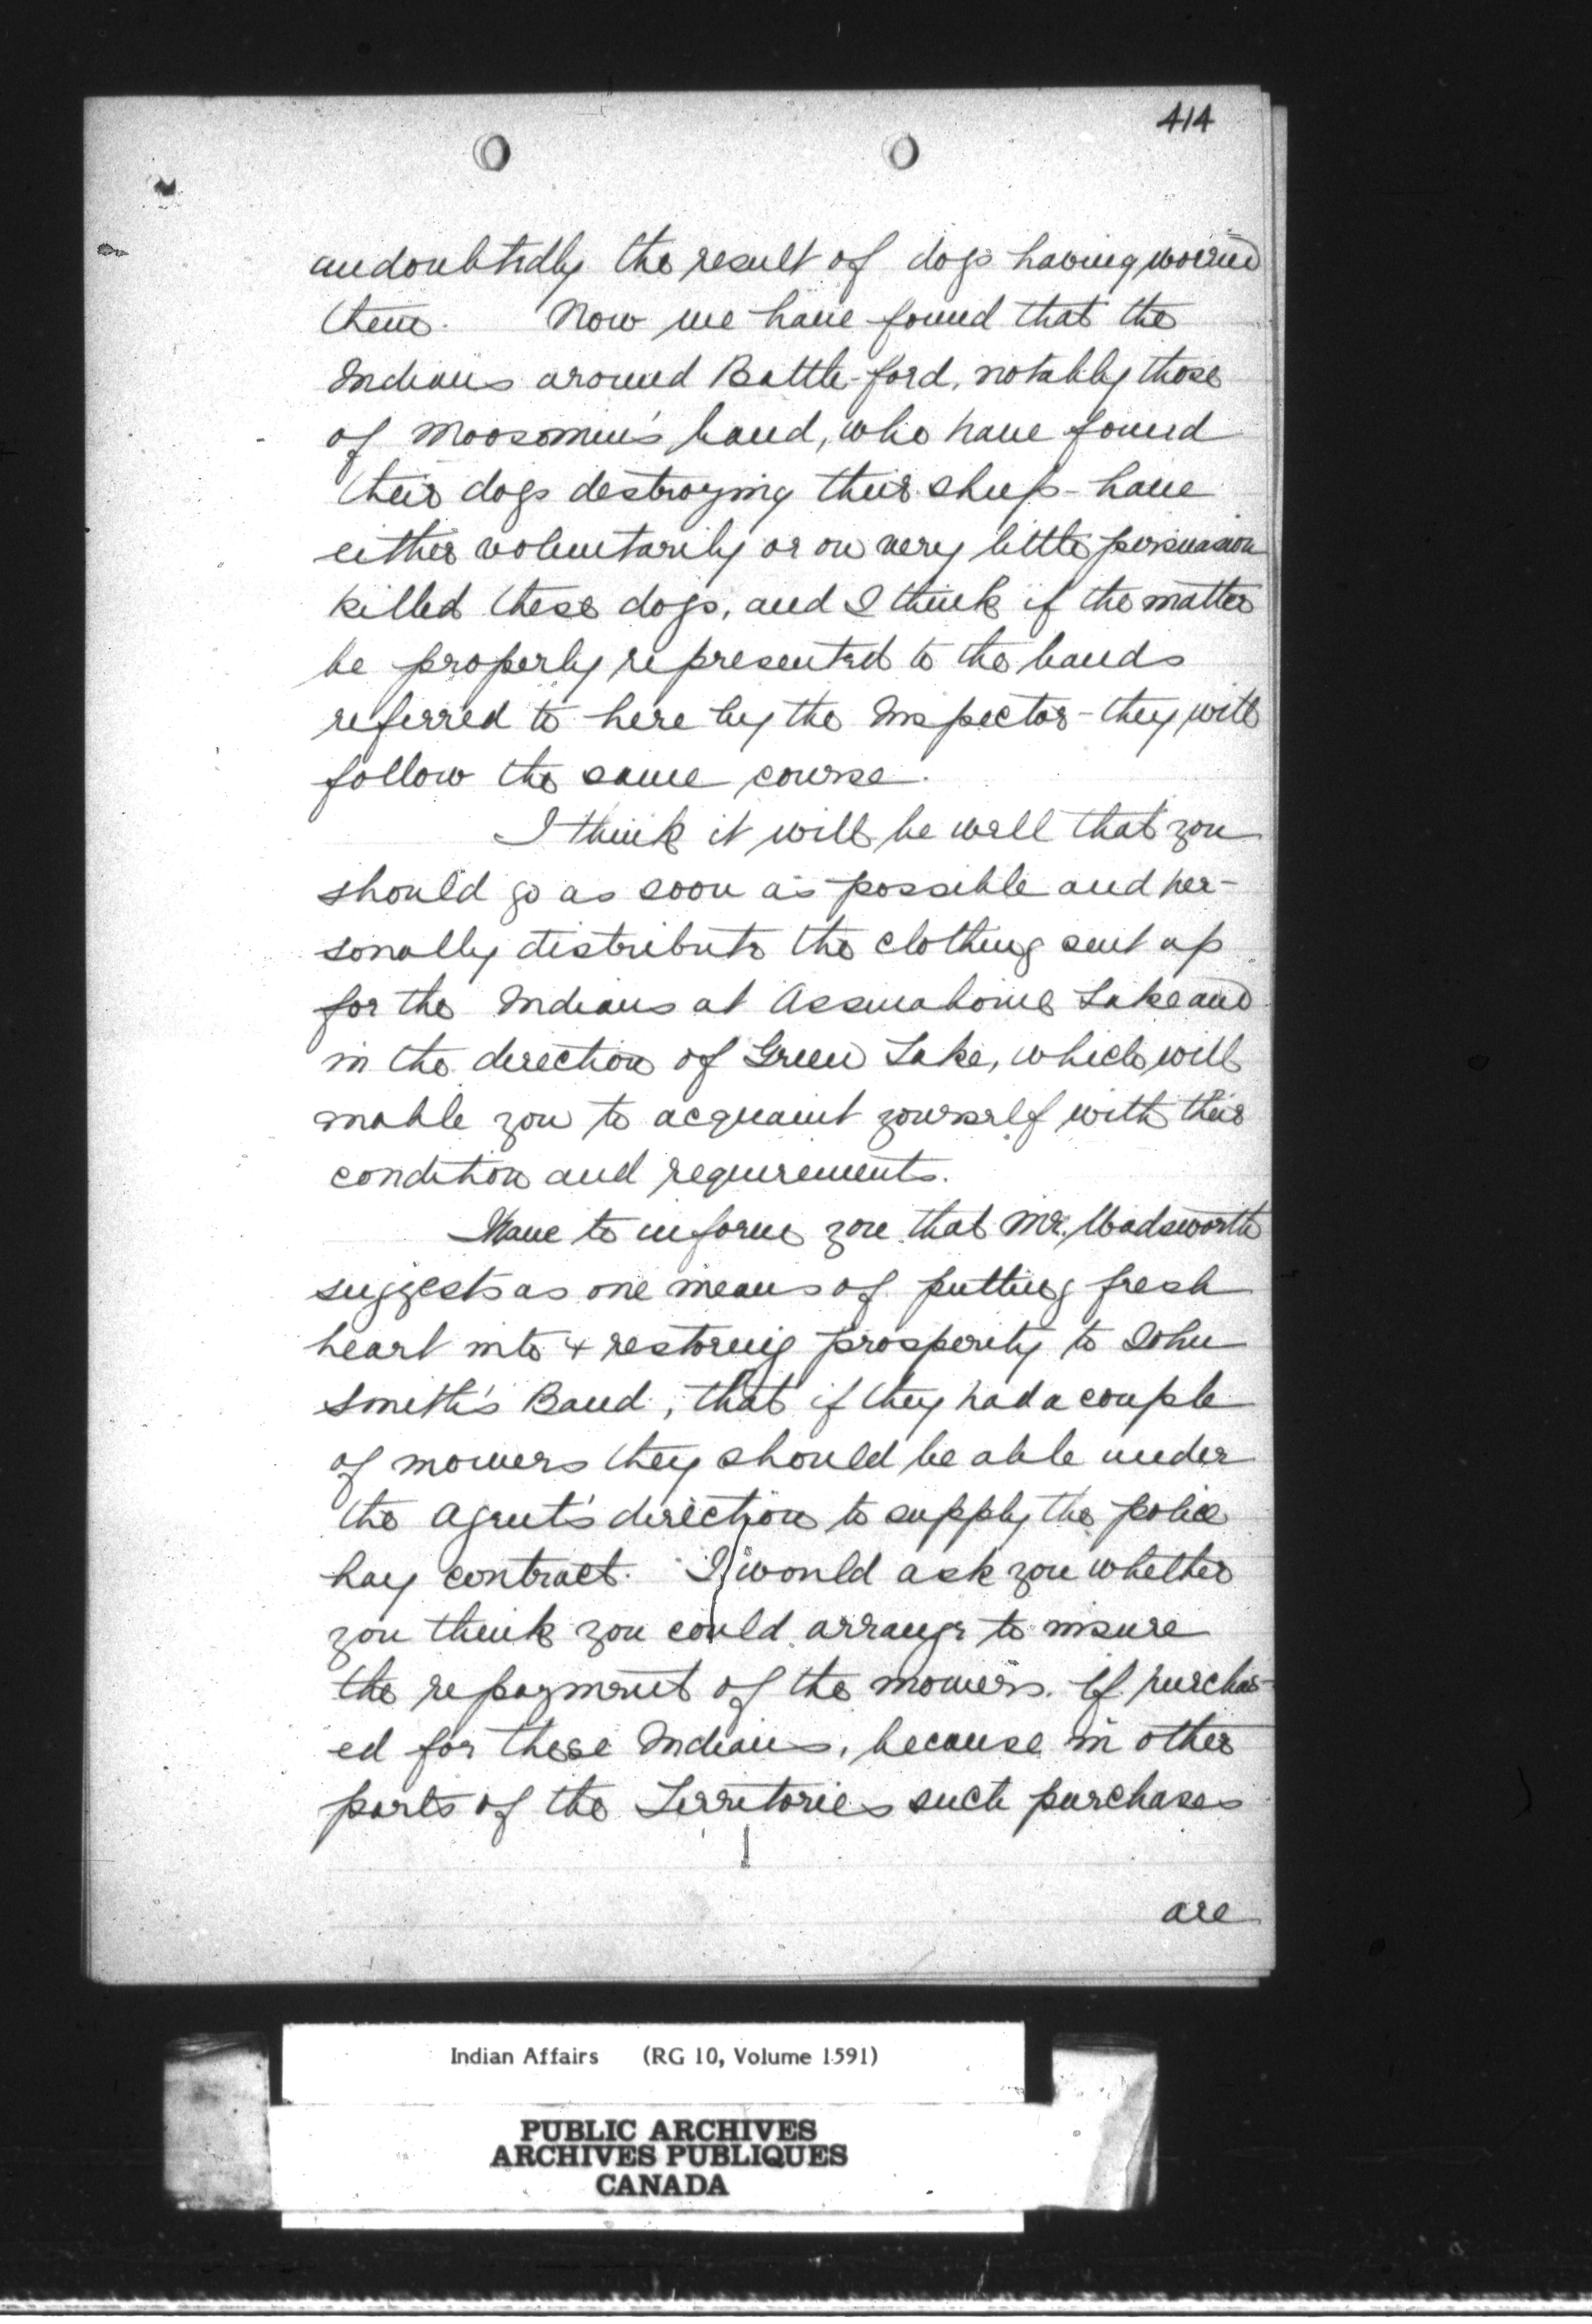 414
undoubtedly the result of dogs having worried
them. Now we have found that the
Indians around Battle-ford, notably those
of Moosomin's band, who have found
their dogs destroying their sheep - have
either voluntarily or on very little persuasion
killed these dogs, and I think if the matter
be properly represented to the bands
referred to here by the Inspector - they will
follow the same course.
I think it will be well that you
should go as soon as possible and per-
sonally distribute the clothing sent up
for the Indians at Assinaboine Lake and
in the direction of Green Lake, which will
enable you to acquaint yourself with their
condition and requirements.
Have to inform you that Mr. Wadsworth
suggests as one means of putting fresh
heart into & restoring prosperity to John
Smith's Band, that if they had a couple
of mowers they should be able under
the Agent's direction to supply the police
hay contract. I would ask you whether
you think you could arrange to insure
the repayment of the mowers. If purchas-
ed for these Indians, because in other
parts of the Territories such purchases
are
Indian Affairs (RG 10, Volume 1591)
PUBLIC ARCHIVES
ARCHIVES PUBLIQUES
CANADA